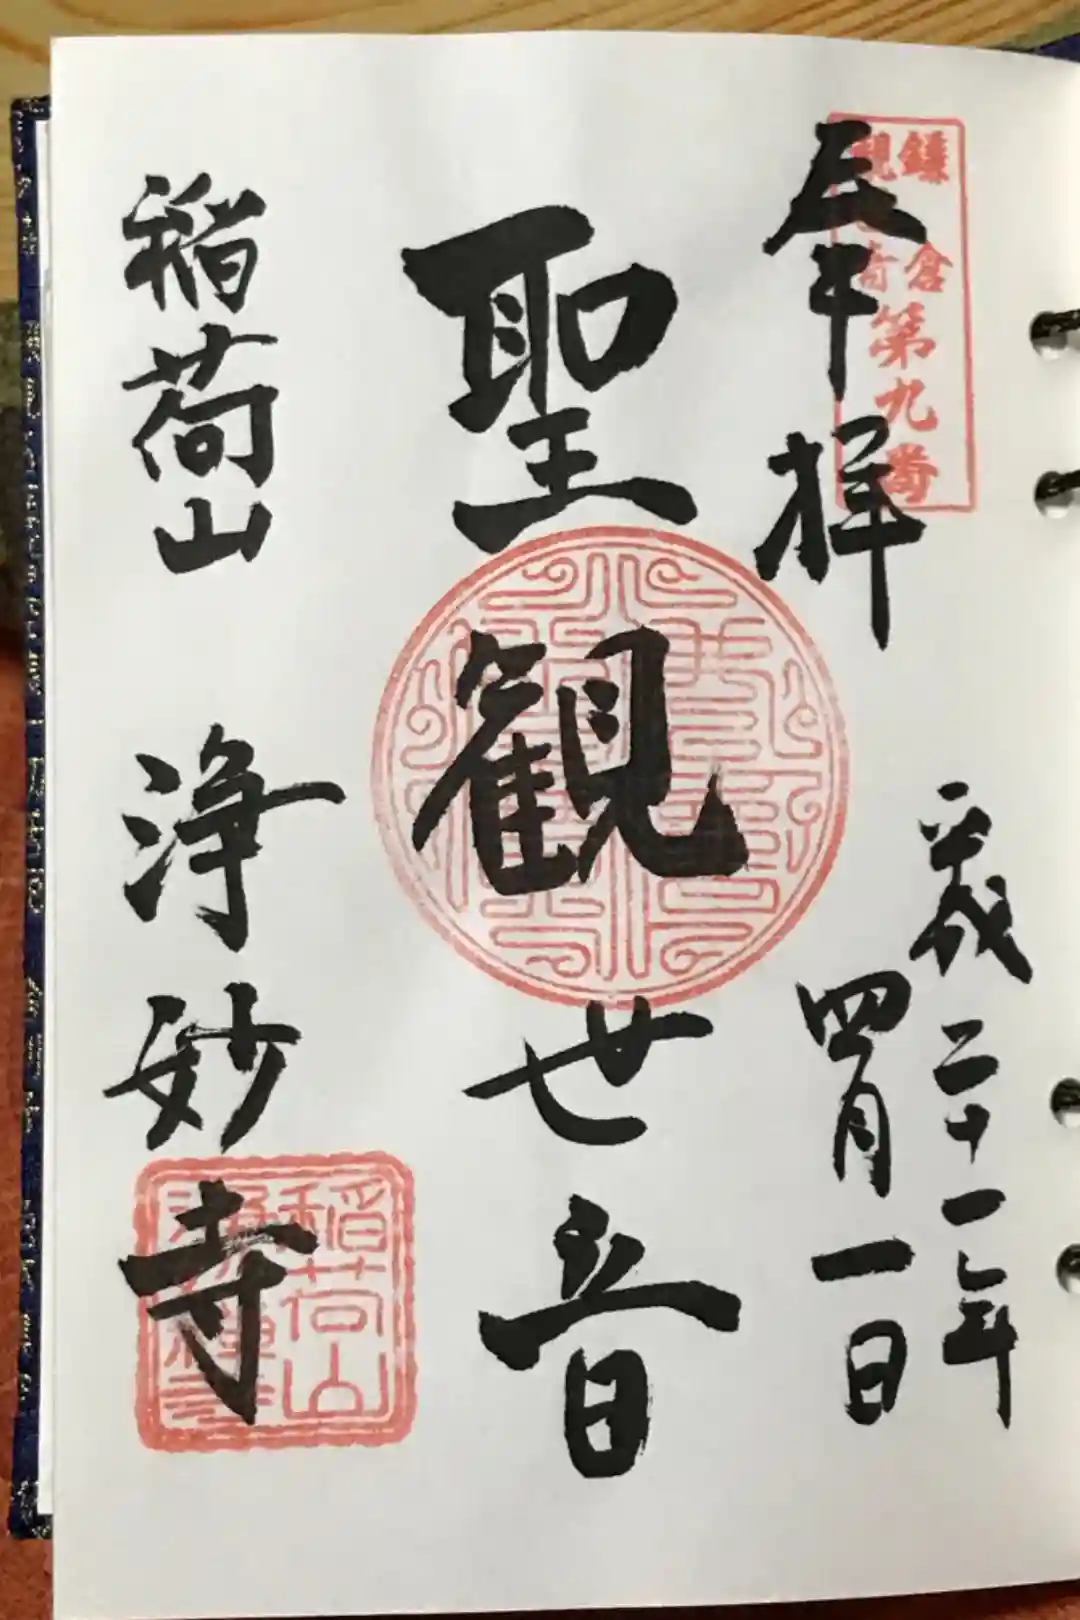 奉拝
鎌倉
観音
第九番
平成二十一年
四月一日
聖観世音
稲荷山 浄妙寺
稲荷山